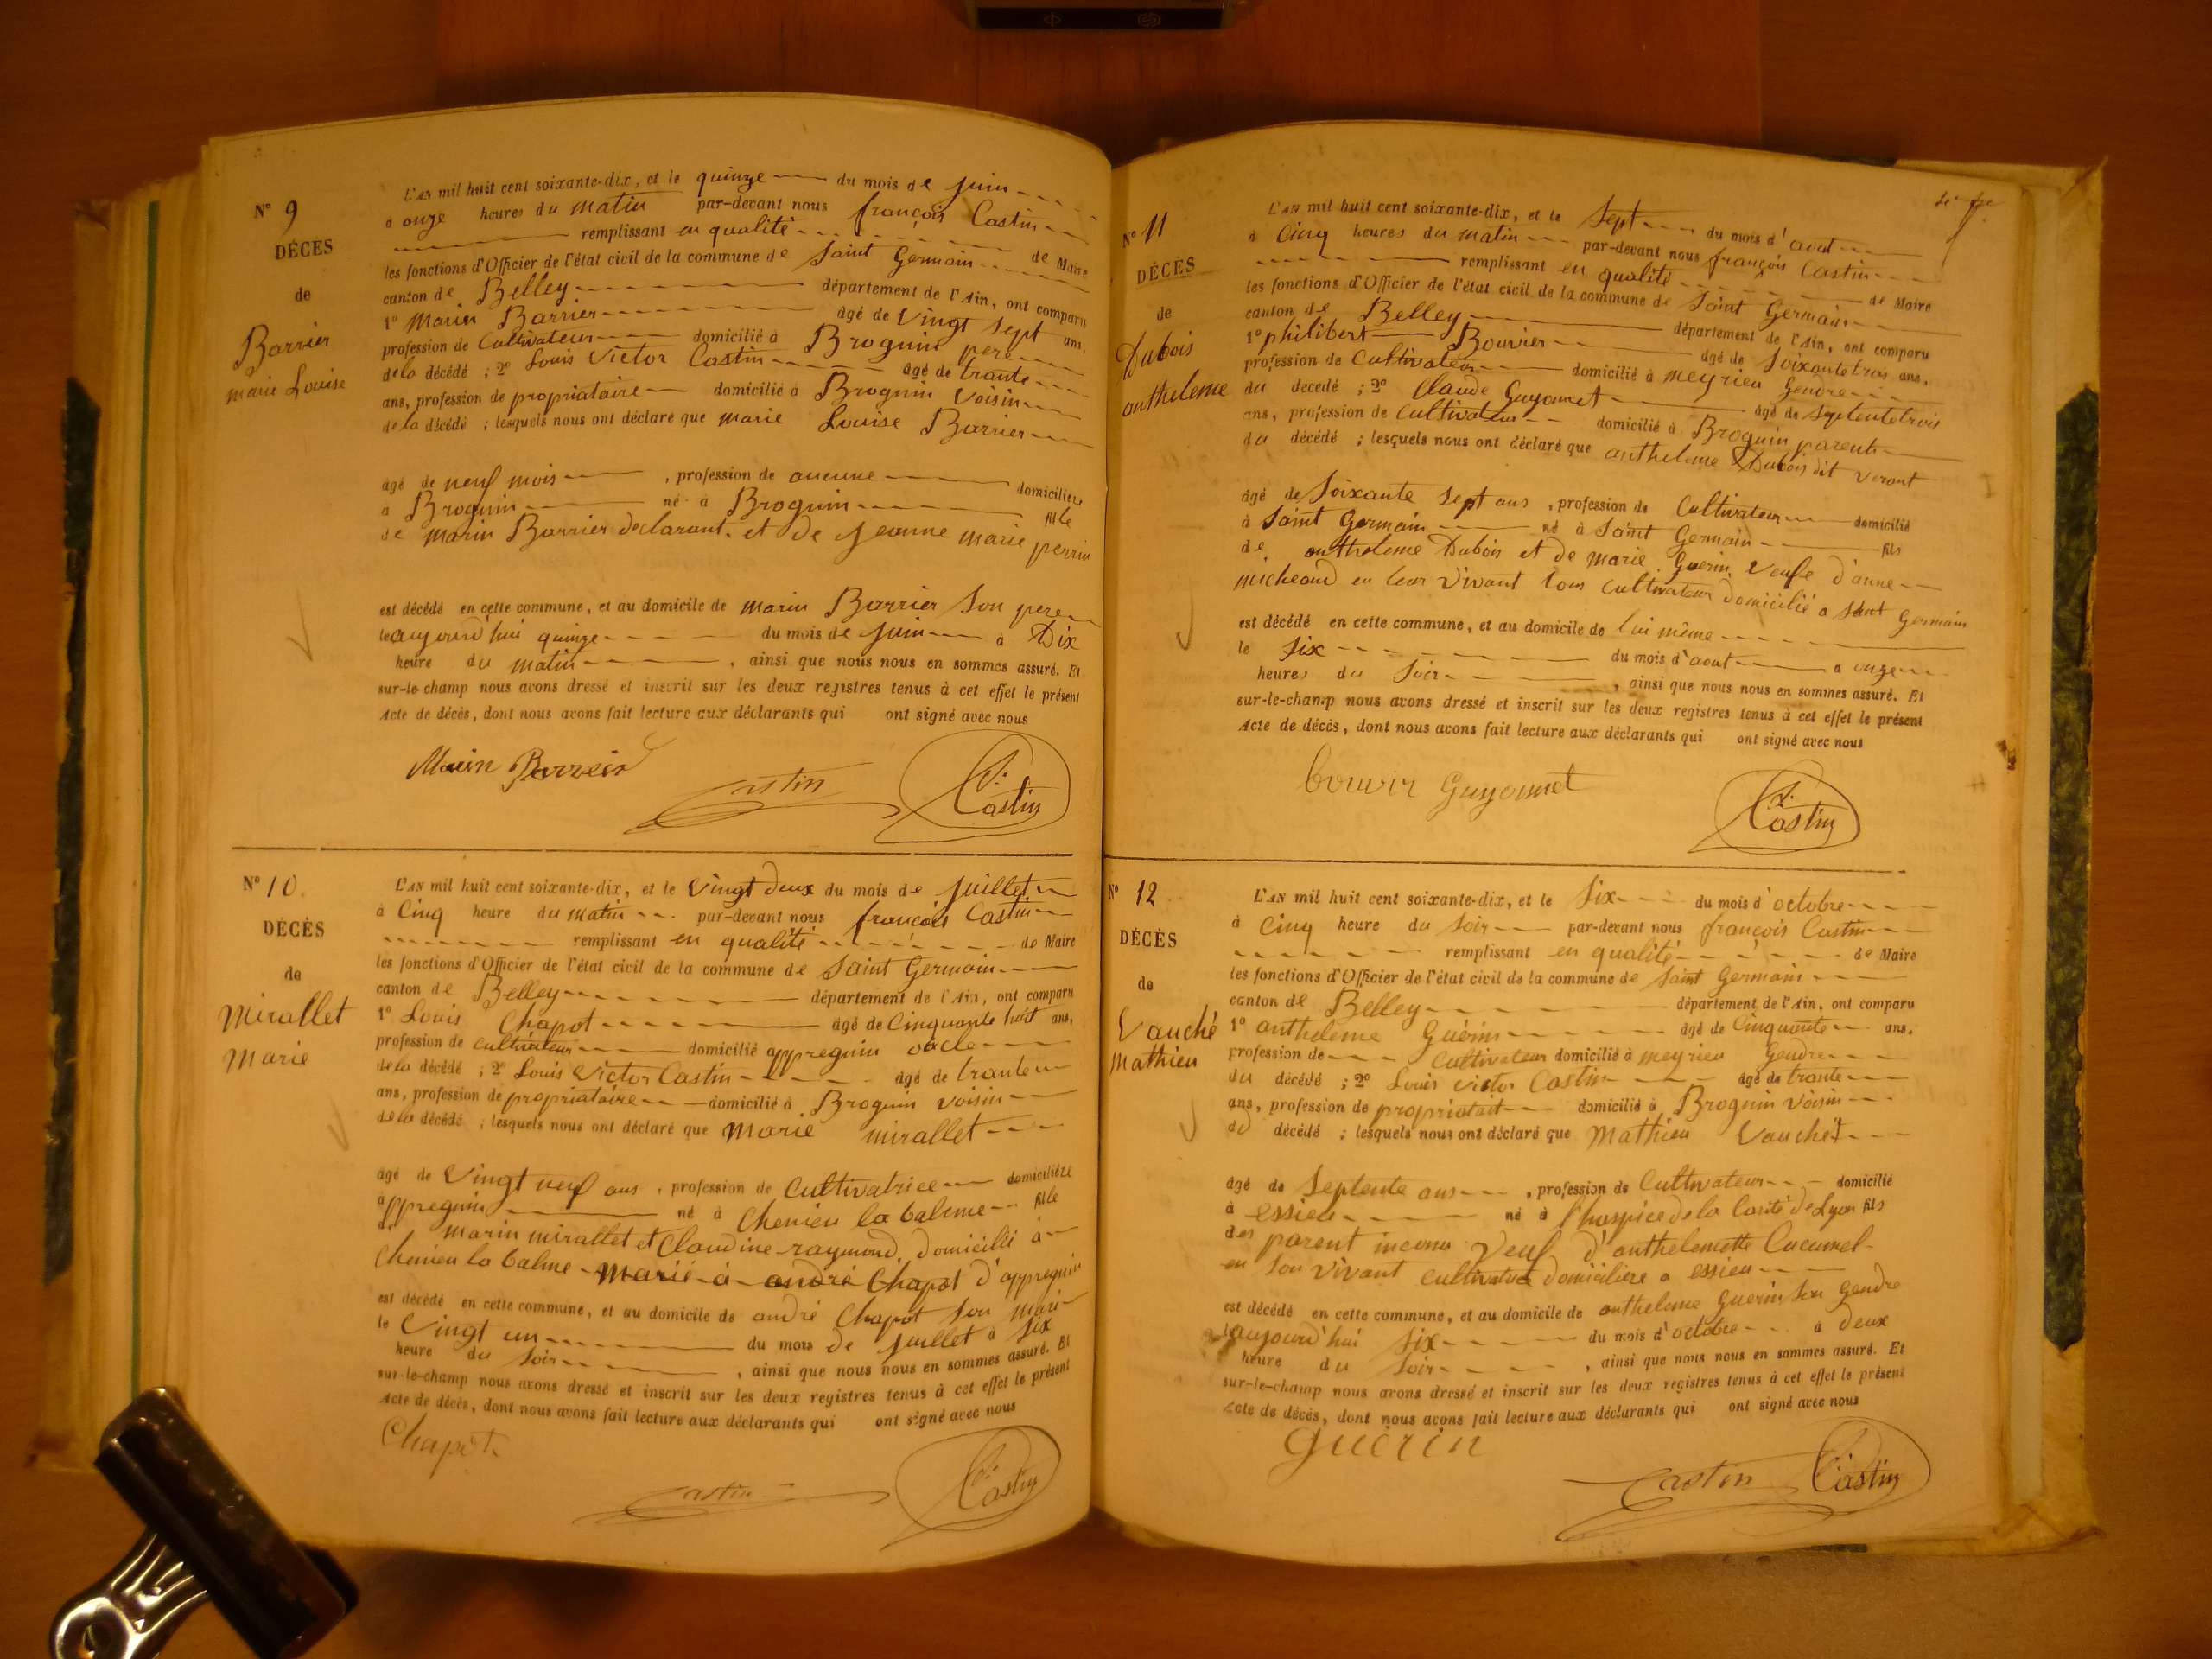 N° 9
DÉCÈS
de
Barrier
marie Louise
L'AN mil huit cent soixante-dix, et le quinze du mois de juin
à onze heures du matin par-devant nous françois Castin
remplissant en qualité de Maire
les fonctions d'Officier de l'état civil de la commune de Saint Germain
canton de Belley département de l'Ain, ont comparu
1° Marin Barrier âgé de vingt sept ans,
profession de Cultivateur domicilié à Brognin pere
de la décédé ; 2° Louis Victor Castin âgé de trante
ans, profession de propriataire domicilié à Brognin Voisin
de la décédé ; lesquels nous ont déclaré que marie Louise Barrier
âgé de neuf mois , profession de aucune domiciliere
à Brognin né à Brognin fille
de marin Barrier declarant. et de jeanne marie perrin
est décédé en cette commune, et au domicile de marin Barrier Son pere
le aujourd'hui quinze du mois de juin à Dix
heure du matin , ainsi que nous nous en sommes assuré. Et
sur-le-champ nous avons dressé et inscrit sur les deux registres tenus à cet effet le présent
Acte de décès, dont nous avons fait lecture aux déclarants qui ont signé avec nous
Marin Barrier
Castin
f. Castin
N° 10
DÉCÈS
de
Mirallet
Marie
L'AN mil huit cent soixante-dix, et le Vingt deux du mois de juillet
à Cinq heure du matin par-devant nous françois Castin
remplissant en qualité de Maire
les fonctions d'Officier de l'état civil de la commune de Saint Germain
canton de Belley département de l'Ain, ont comparu
1° Louis Chapot âgé de Cinquante huit ans,
profession de cultivateur domicilié appregnin oncle
de la décédé ; 2° Louis Victor Castin âgé de trante
ans, profession de propriatoire domicilié à Brognin voisin
de la décédé ; lesquels nous ont déclaré que Marie mirallet
âgé de Vingt neuf ans , profession de Cultivatrice domiciliere
à ppregnin né à Chenieu la balme fille
de marin mirallet et Claudine raymond, domicilié à
Chenieu la balme Marié à andré Chapot d'appregnin
est décédé en cette commune, et au domicile de andré Chapot Son mari
le Vingt un du mois de juillet à Six
heure du Soir , ainsi que nous nous en sommes assuré. Et
sur-le-champ nous avons dressé et inscrit sur les deux registres tenus à cet effet le présent
Acte de décès, dont nous avons fait lecture aux déclarants qui ont signé avec nous
Chapot
Castin
f. Castin
N° 11
DÉCÈS
de
Dubois
antheleme
L'AN mil huit cent soixante-dix, et le Sept du mois d'aout
à Cinq heures du matin par-devant nous françois Castin
remplissant en qualité de Maire
les fonctions d'Officier de l'état civil de la commune de Saint Germain
canton de Belley département de l'Ain, ont comparu
1° philibert Bouvier âgé de Soixante trois ans,
profession de Cultivateur domicilié à meyrieu Gendre
du décédé ; 2° Claude Guyonnet âgé de Septente trois
ans, profession de Cultivateur domicilié à Brognin parent
du décédé ; lesquels nous ont déclaré que antheleme Dubois dit Veront
âgé de Soixante Sept ans , profession de Cultivateur domicilié
à Saint Germain né à Saint Germain fils
de antheleme Dubois et de marie Guerin Veufe d'anne
micheaud en leur Vivant tous Cultivateur domicilié a Saint Germain
est décédé en cette commune, et au domicile de lui même
le Six du mois d'aout a onze
heures du Soir , ainsi que nous nous en sommes assuré. Et
sur-le-champ nous avons dressé et inscrit sur les deux registres tenus à cet effet le présent
Acte de décès, dont nous avons fait lecture aux déclarants qui ont signé avec nous
bouvir Guyonnet
f. Castin
N° 12
DÉCÈS
de
Vauché
Mathieu
L'AN mil huit cent soixante-dix, et le Six du mois d'octobre
à Cinq heure du Soir par-devant nous françois Castin
remplissant en qualité de Maire
les fonctions d'Officier de l'état civil de la commune de Saint Germain
canton de Belley département de l'Ain, ont comparu
1° antheleme Guérin âgé de Cinquante ans,
profession de Cultivateur domicilié à meyrieu Gendre
du décédé ; 2° Louis Victor Castin âgé de trante
ans, profession de propriatait domicilié à Brognin Voisin
du décédé ; lesquels nous ont déclaré que Mathieu Vauché
âgé de Septente ans , profession de Cultivateur domicilié
à essieu né à l'hospice de la Carité de Lyon fils
des parent inconu Veuf d'anthelemette Cucumel
en Son Vivant cultivatrice domiciliere a essieu
est décédé en cette commune, et au domicile de antheleme Guerin Son Gendre
le aujourd'hui Six du mois d'octobre à Deux
heure du Soir , ainsi que nous nous en sommes assuré. Et
sur-le-champ nous avons dressé et inscrit sur les deux registres tenus à cet effet le présent
Acte de décès, dont nous avons fait lecture aux déclarants qui ont signé avec nous
guérin
Castin
f. Castin